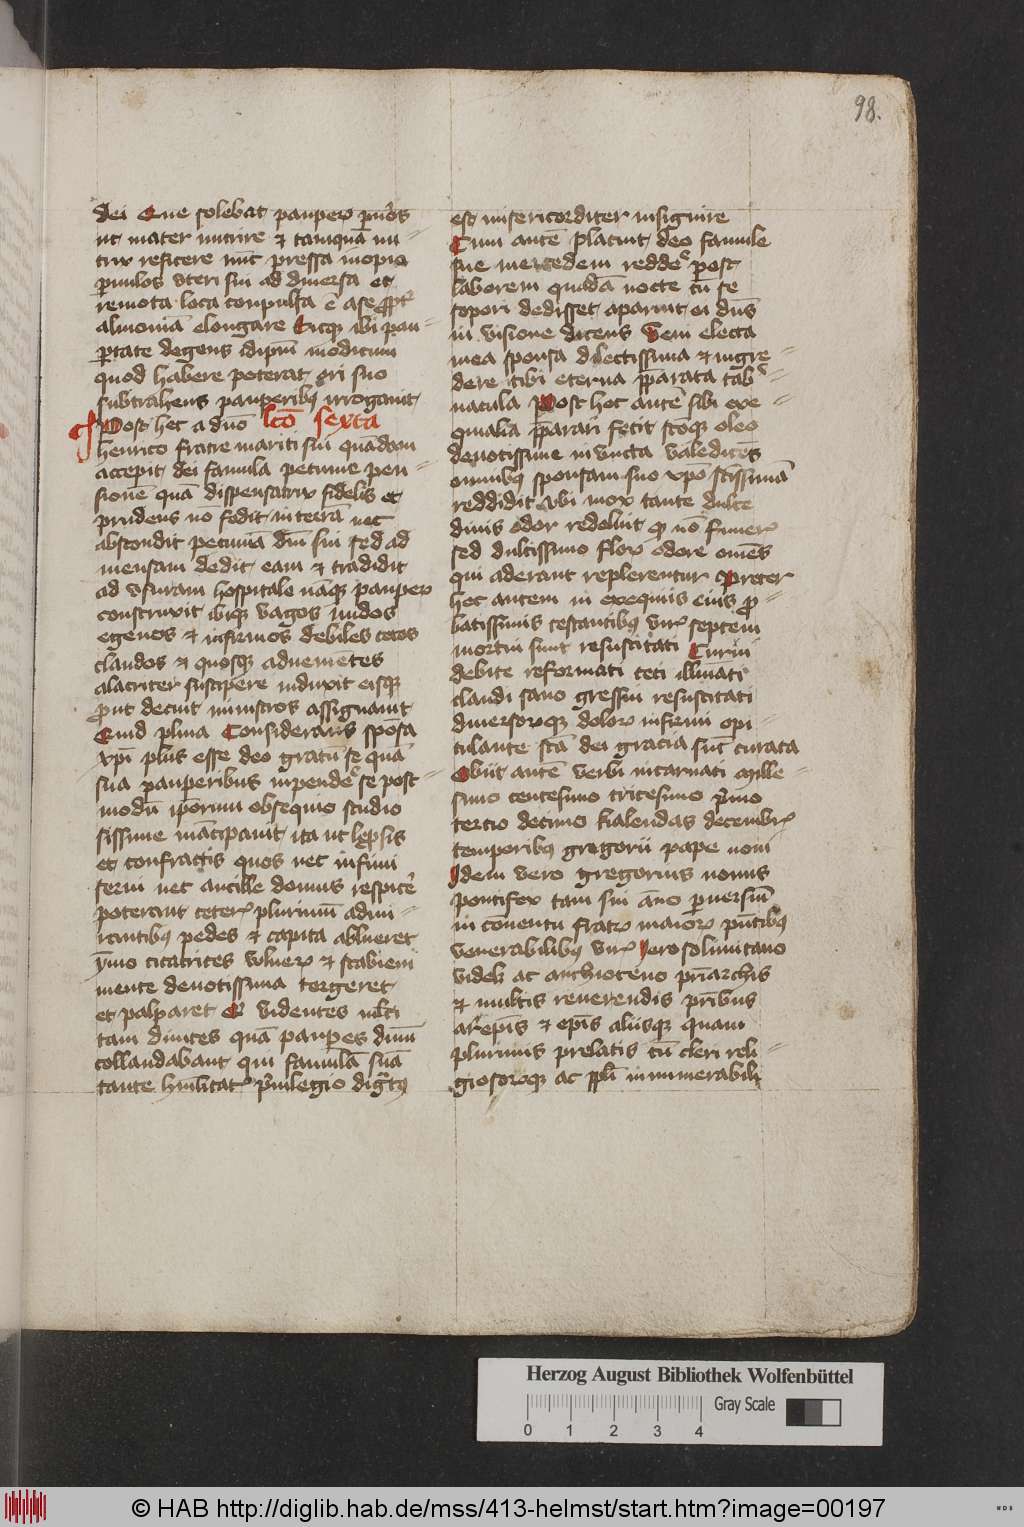 98.
dei Que solebat pauperꝝ pu̅os
ut mater nutrire ⁊ tamqua̅ nu-
trix reficere nu̅c pressa inopia
puulos vteri sui ad diuersa et
remota loca conpulsa e̅ a se ꝓpt̕
alimonia̅ elongare Sicqꝫ ibi pau-
ꝑtate degens idipm̅ modicum
quod habere poterat ori suo
subtrahens pauperibꝰ irrogauit
Post hec a dn̅o lc̅o sexta
henrico fratre mariti sui qua̅dam
accepit dei famula pecunie pen-
sione̅ qua̅ dispensatrix fidelis et
prudens no̅ fodit in terra̅ nec
abscondit pecunia̅ dn̅i sui sed ad
mensam dedit eam ⁊ tradidit
ad vsuram hospitale na̅qꝫ pauperꝝ
construxit ibiqꝫ vagos nudos
egenos ⁊ infirmos debiles cecos
claudos ⁊ quosqꝫ aduenie̅tes
alacriter suscipere induxit eisqꝫ
ꝓut decuit ministros assignauit
Quid plura Considerans spo̅sa
xpi̅ plus esse deo gratu̅ se qua̅
sua pauperibus inpende̕ se post-
modu̅ ipo̅rum obsequio studio
sissime ma̅cipauit ita ut lep̱sis
et confractis quos nec infimi
serui nec ancille domus respice̕
poterant ceterꝭ plurimu̅ admi-
rantibꝰ pedes ⁊ capita ablueret
ymo cicatrices vlnerꝝ ⁊ scabiem
mente deuotissima tergeret
et palparet Et videntes ml̅ti
tam diuites qua̅ pauꝑes dn̅m
collaudabant qui famula̅ sua̅
tante humilitatꝭ p̕uilegio dig̅tꝰ
est misericorditer insignire
Cum aute̅ placuit deo famule
sue mercedem redde̕ post
laborem quada̅ nocte cu̅ se
sopori dedisset aparuit ei dn̅s
in visione dicens Veni electa
mea sponsa dilectissima ⁊ ingre-
dere tibi eterna p̅parata tab̕-
nacula Post hec aute̅ sibi exe-
quialia p̅parari fecit sc̅oqꝫ oleo
deuotissime inuncta valedice̅s
omnibꝰ sponsam suo xpo̅ sc̅issima̅
reddidit vbi mox tante dulce
dinis odor redoluit ꝙ no̅ funerꝭ
sed dulcissimo florꝝ odore omes̅
qui aderant replerentur Preter
hec autem in exequiis eius ꝓ-
batissimis testantibꝰ virꝭ septem
mortui sunt resuscitati Curui
debite reformati ceci illuiati̅
claudi sano gressui resuscitati
diuersorqꝫ dolorꝝ infirmi opi-
tulante sc̅a dei gracia sunt curata
Obiit aute̅ verbi incarnati mille-
simo centesimo tricesimo p̕mo
tercio decimo kalendas decembrꝭ
temporibꝰ gregorii pape noni
Idem vero gregorius nonus
pontifex tam sui an̅o ꝑuersu̅
in conuentu fratrꝝ maiorꝝ pn̅tibꝰ
venerabilibꝰ virꝭ Jerosolimitano
videlꝫ ac anthioceno pr̅iarchis
⁊ multis reuerendis pr̅ibus
arep̅is ⁊ ep̅is aliisqꝫ quam
plurimis prelatis cu̅ cleri reli-
giosoroqꝫ ac ppl̅i innumerabili
Herzog August Bibliothek Wolfenbüttel
Gray Scale
0 1 2 3 4
© HAB http://diglib.hab.de/mss/413-helmst/start.htm?image=00197